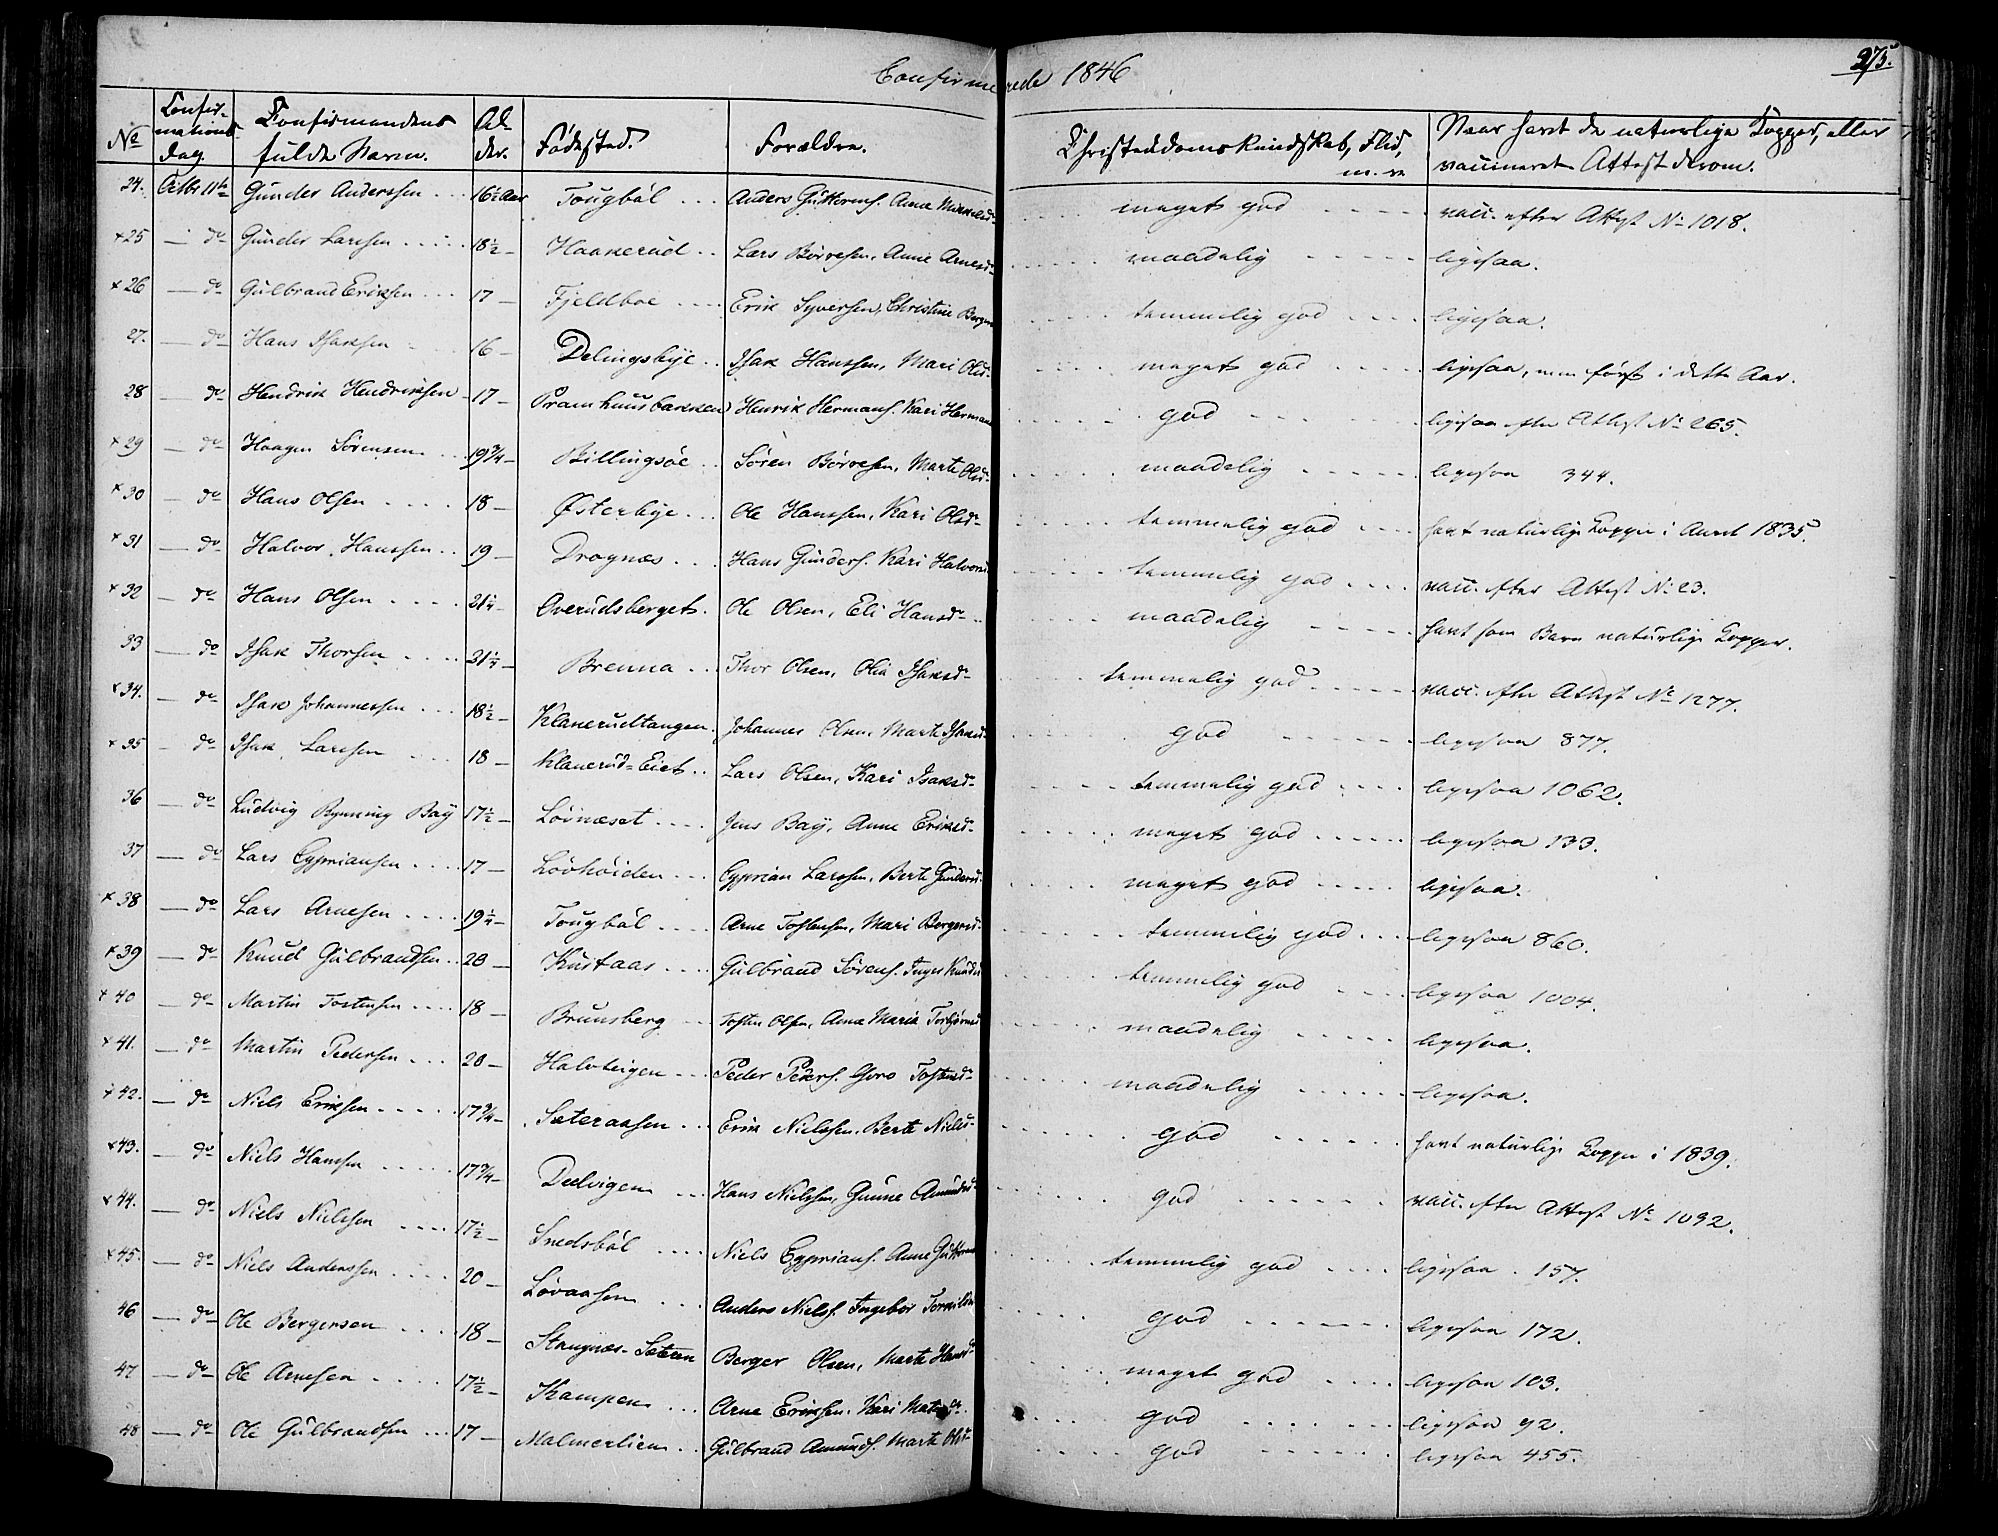 Confirmerede 1846
275.
No Confirmations Dag. Confirmandens fulde Navn. Alder. Fødested. Forældre. Christendomskundskab, Flid, m. v. Naar havt de naturlige Kopper, eller vaccineret Attest derom.
24. Octbr 11te Gunder Anderssen 16½ Aar Tougbøl Anders Guttorms. Anne Mikkelsd meget god vacc. efter Attest No 1018.
×25 — do Gunder Larssen 18½ — Haakerud Lars Børresen, Anne Arnesd maadelig ligesaa.
×26 — do Gulbrand Eriksen 17 — Fjeldboe Erik Syversen, Christine Berger temmelig god ligesaa.
27. — do Hans Isaksen 16 — Delingsbye Isak Hanssen, Mari Olsd meget god ligesaa, men først i dette Aar.
28 — do Hendrik Hendriksen 17 — Pramhuusbakken Henrik Hermans. Kari Herman god ligesaa efter Attest No 265.
×29 — do Haagen Sørensen 19¾ — Billingsøe Sören Börresen, Marte Olsd maadelig ligesaa 344.
×30 — do Hans Olsen 18 — Østerbye Ole Hanssen, Kari Olsd temmelig god havt naturlige Kopper i Aaret 1835.
×31 — do Halvor Hanssen 19 — Drognæs Hans Gunders. Kari Halvorsd temmelig god vacc. efter Attest No 23.
×32 — do Hans Olsen 21¼ — Overudsberget Ole Olsen, Eli Hansd maadelig havt som Barn naturlige Kopper.
33 — do Isak Thorsen 21¼ — Brenna Thor Olsen, Olia Isaksd temmelig god vacc. efter Attest No 1277.
×34. — do Isak Johannessen 18½ — Klakerudtangen Johannes Olsen, Marte Isaksd god ligesaa 877.
×35 — do Isak Larssen 18 — Klanerud-Eiet Lars Olsen, Kari Isaksd temmelig god ligesaa 1062.
36 — do Ludvig Rynning Baÿ 17½ — Løvnæset Jens Baÿ, Anne Eriksd meget god ligesaa 133.
37 — do Lars Cyprianssen 17 — Løvhöiden Cyprian Larssen, Berte Gundersd meget god ligesaa.
×38 — do Lars Arnesen 19¼ — Tougbøl Arne Tostensen, Mari Bergersd temmelig god ligesaa 860.
×39 — do Knud Gulbrandsen 20 — Kustaas Gulbrand Sørens. Inger Knudsd temmelig god ligesaa 1004.
×40 — do Martin Tostensen 18 — Bruunsberg Tosten Olsen, Anne Maria Torbjørnsd maadelig ligesaa.
×41. — do Martin Pedersen 20 — Halvteigen Peder Peders. Goro Tostensd maadelig ligesaa.
×42. — do Niels Eriksen 17¾ — Sæteraasen Erik Nielssen, Berte Nielsd god havt naturlige Kopper i 1839.
×43. — do Niels Hanssen 17¾ — Deelvigen Hans Nielssen, Gunne Amundsd god vacc. efter Attest No 1092.
×44. — do Niels Nielssen 17½ — Snedsbøl Niels Cyprians. Anne Guttorms temmelig god ligesaa 157.
×45. — do Niels Anderssen 20 — Løvaasen Anders Niels. Ingebor Torkilds god ligesaa 172.
46 — do Ole Bergersen 18 — Strugnæs-Sæteren Berger Olsen, Marte Hansd meget god ligesaa 103.
47 — do Ole Arnesen 17½ — Kampen Arne Eriksen, Kari god ligesaa 92.
48 — do Ole Gulbrandsen 17 — Malmerlien Gulbrand Amunds. Marte Olsd god ligesaa 455.